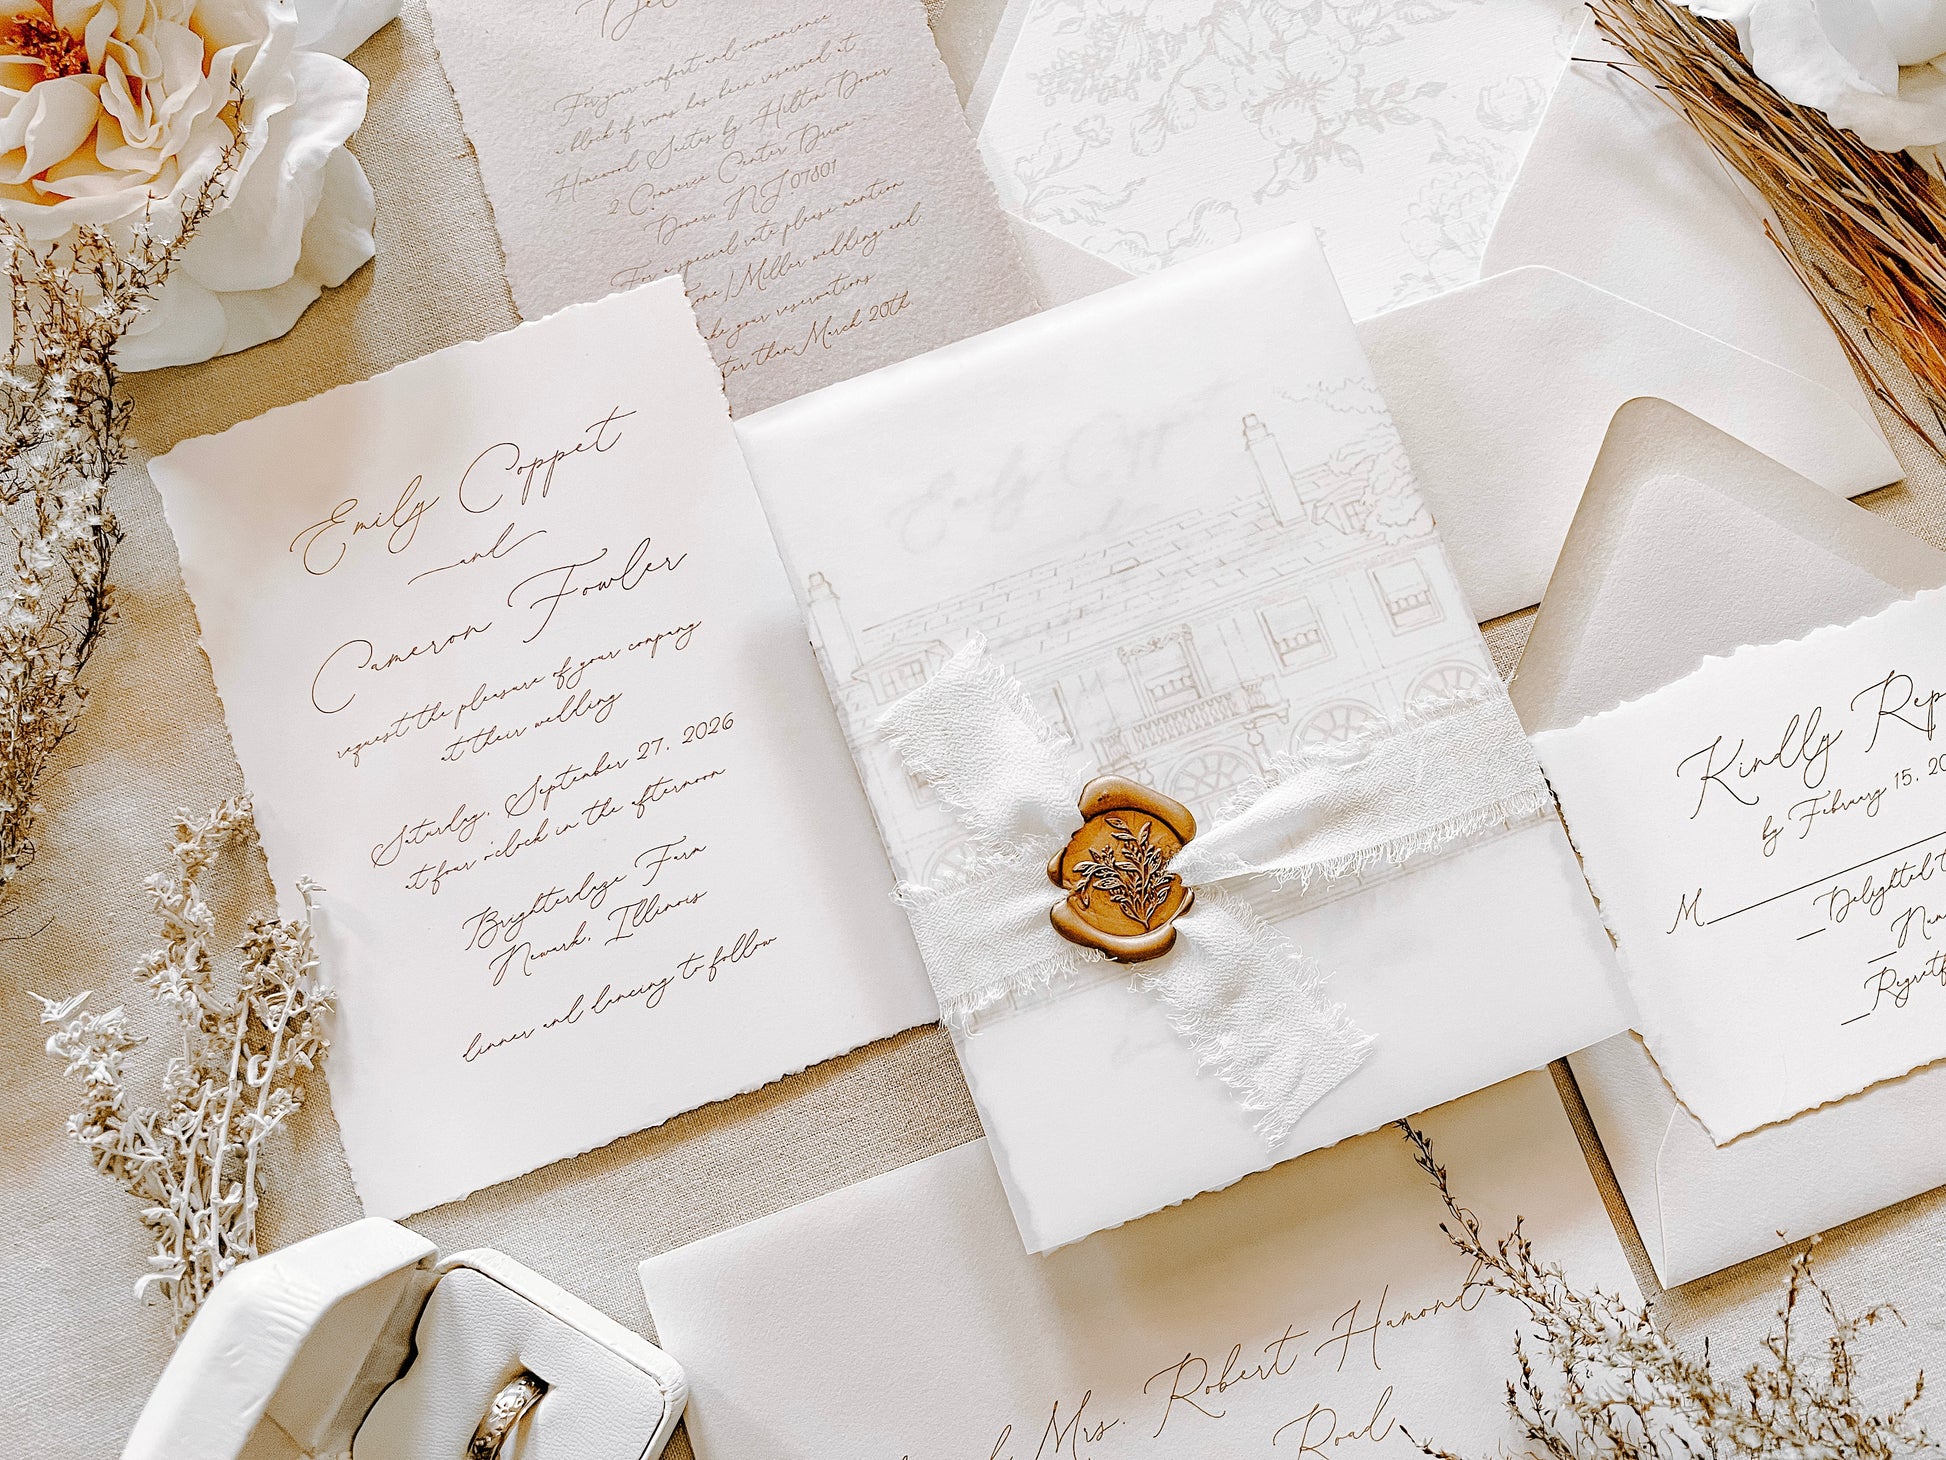 For your comfort and convenience
a block of rooms has been reserved at
Homewood Suites by Hilton Dover
2 Commerce Center Drive
Dover, NJ 07801
For a special rate please mention
/Miller wedding and
your reservations
than March 20th.
Emily Coppet
and
Cameron Fowler
request the pleasure of your company
at their wedding
Saturday, September 27, 2026
at four o'clock in the afternoon
Brighterdaze Farm
Newark, Illinois
dinner and dancing to follow
Emily Coppet
Kindly
by February 15,
M
Delighted
Mrs. Robert Hamond
Road